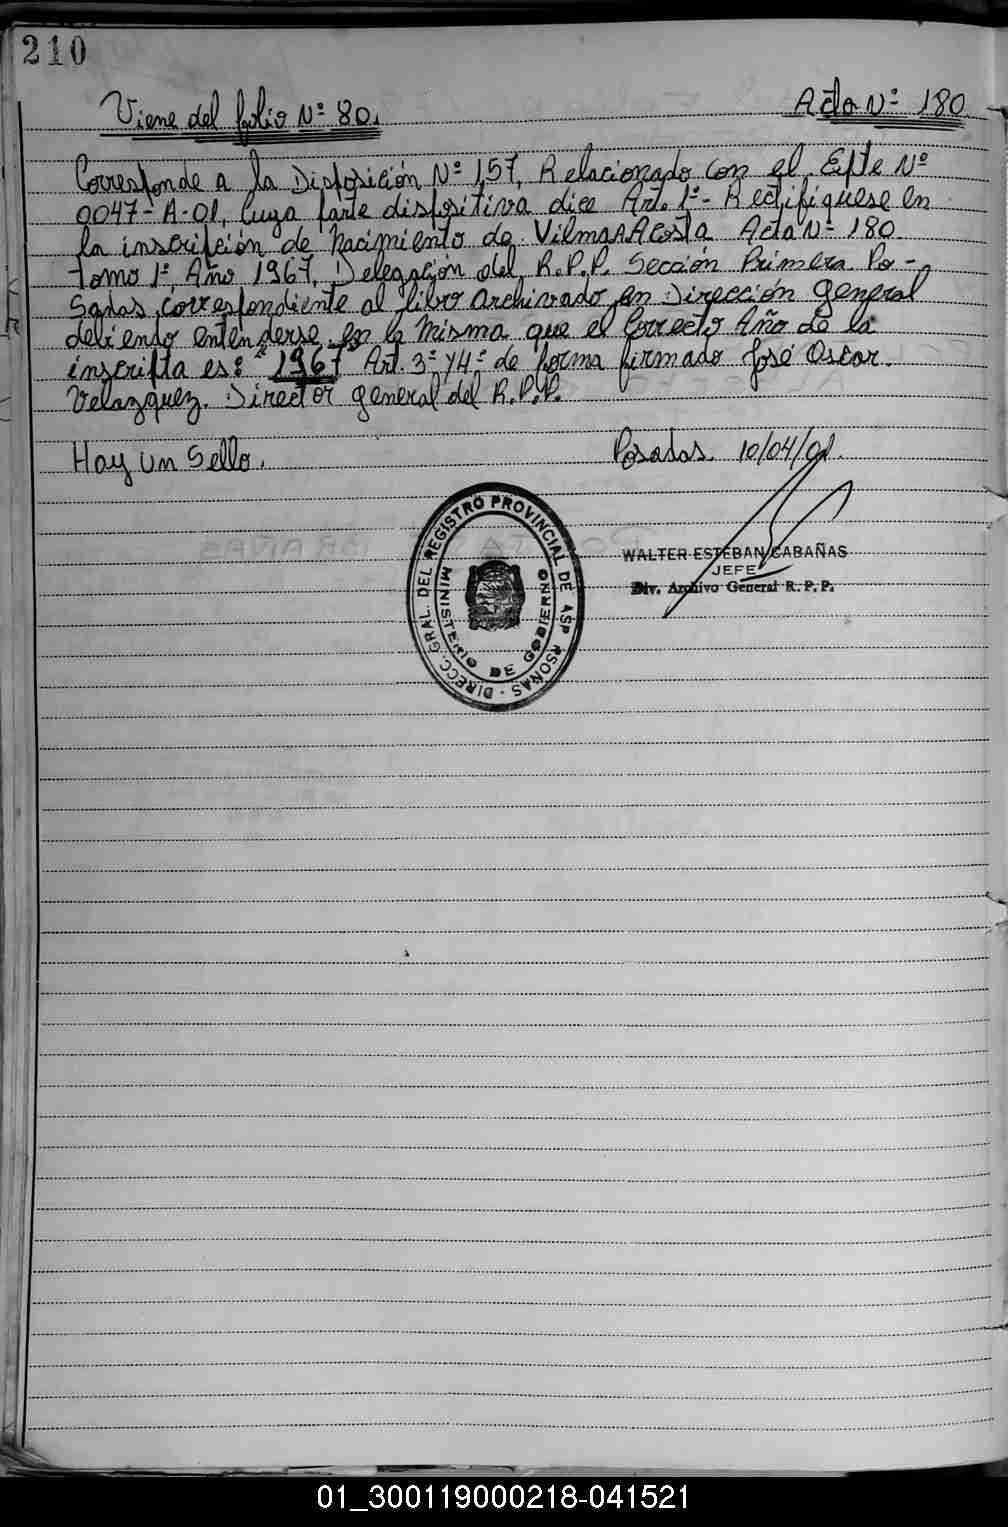 210
Viene del folio Nº 80.
Acta Nº 180
Corresponde a la Disposición Nº 157, Relacionado con el Expte Nº
0047-A-01, Cuya parte dispositiva dice Art. 1º- Rectifíquese en
la inscripción de Nacimiento de Vilma A Acosta Acta Nº 180
tomo 1º, Año 1967, Delegación del R.P.P. Sección Primera Po-
sadas, correspondiente al libro archivado en Dirección general
debiendo entenderse en la misma que el Correcto Año de la
inscripta es: "1967" Art. 3º y 4º de forma firmado José Oscar
Velazquez. Director general del R.P.P.
Hay un Sello.
Posadas 10/04/01.
DIRECC. GRAL. DEL REGISTRO PROVINCIAL DE
MINISTERIO DE GOBIERNO
WALTER ESTEBAN CABAÑAS
JEFE
Div. Archivo General R. P. P.
01_300119000218-041521